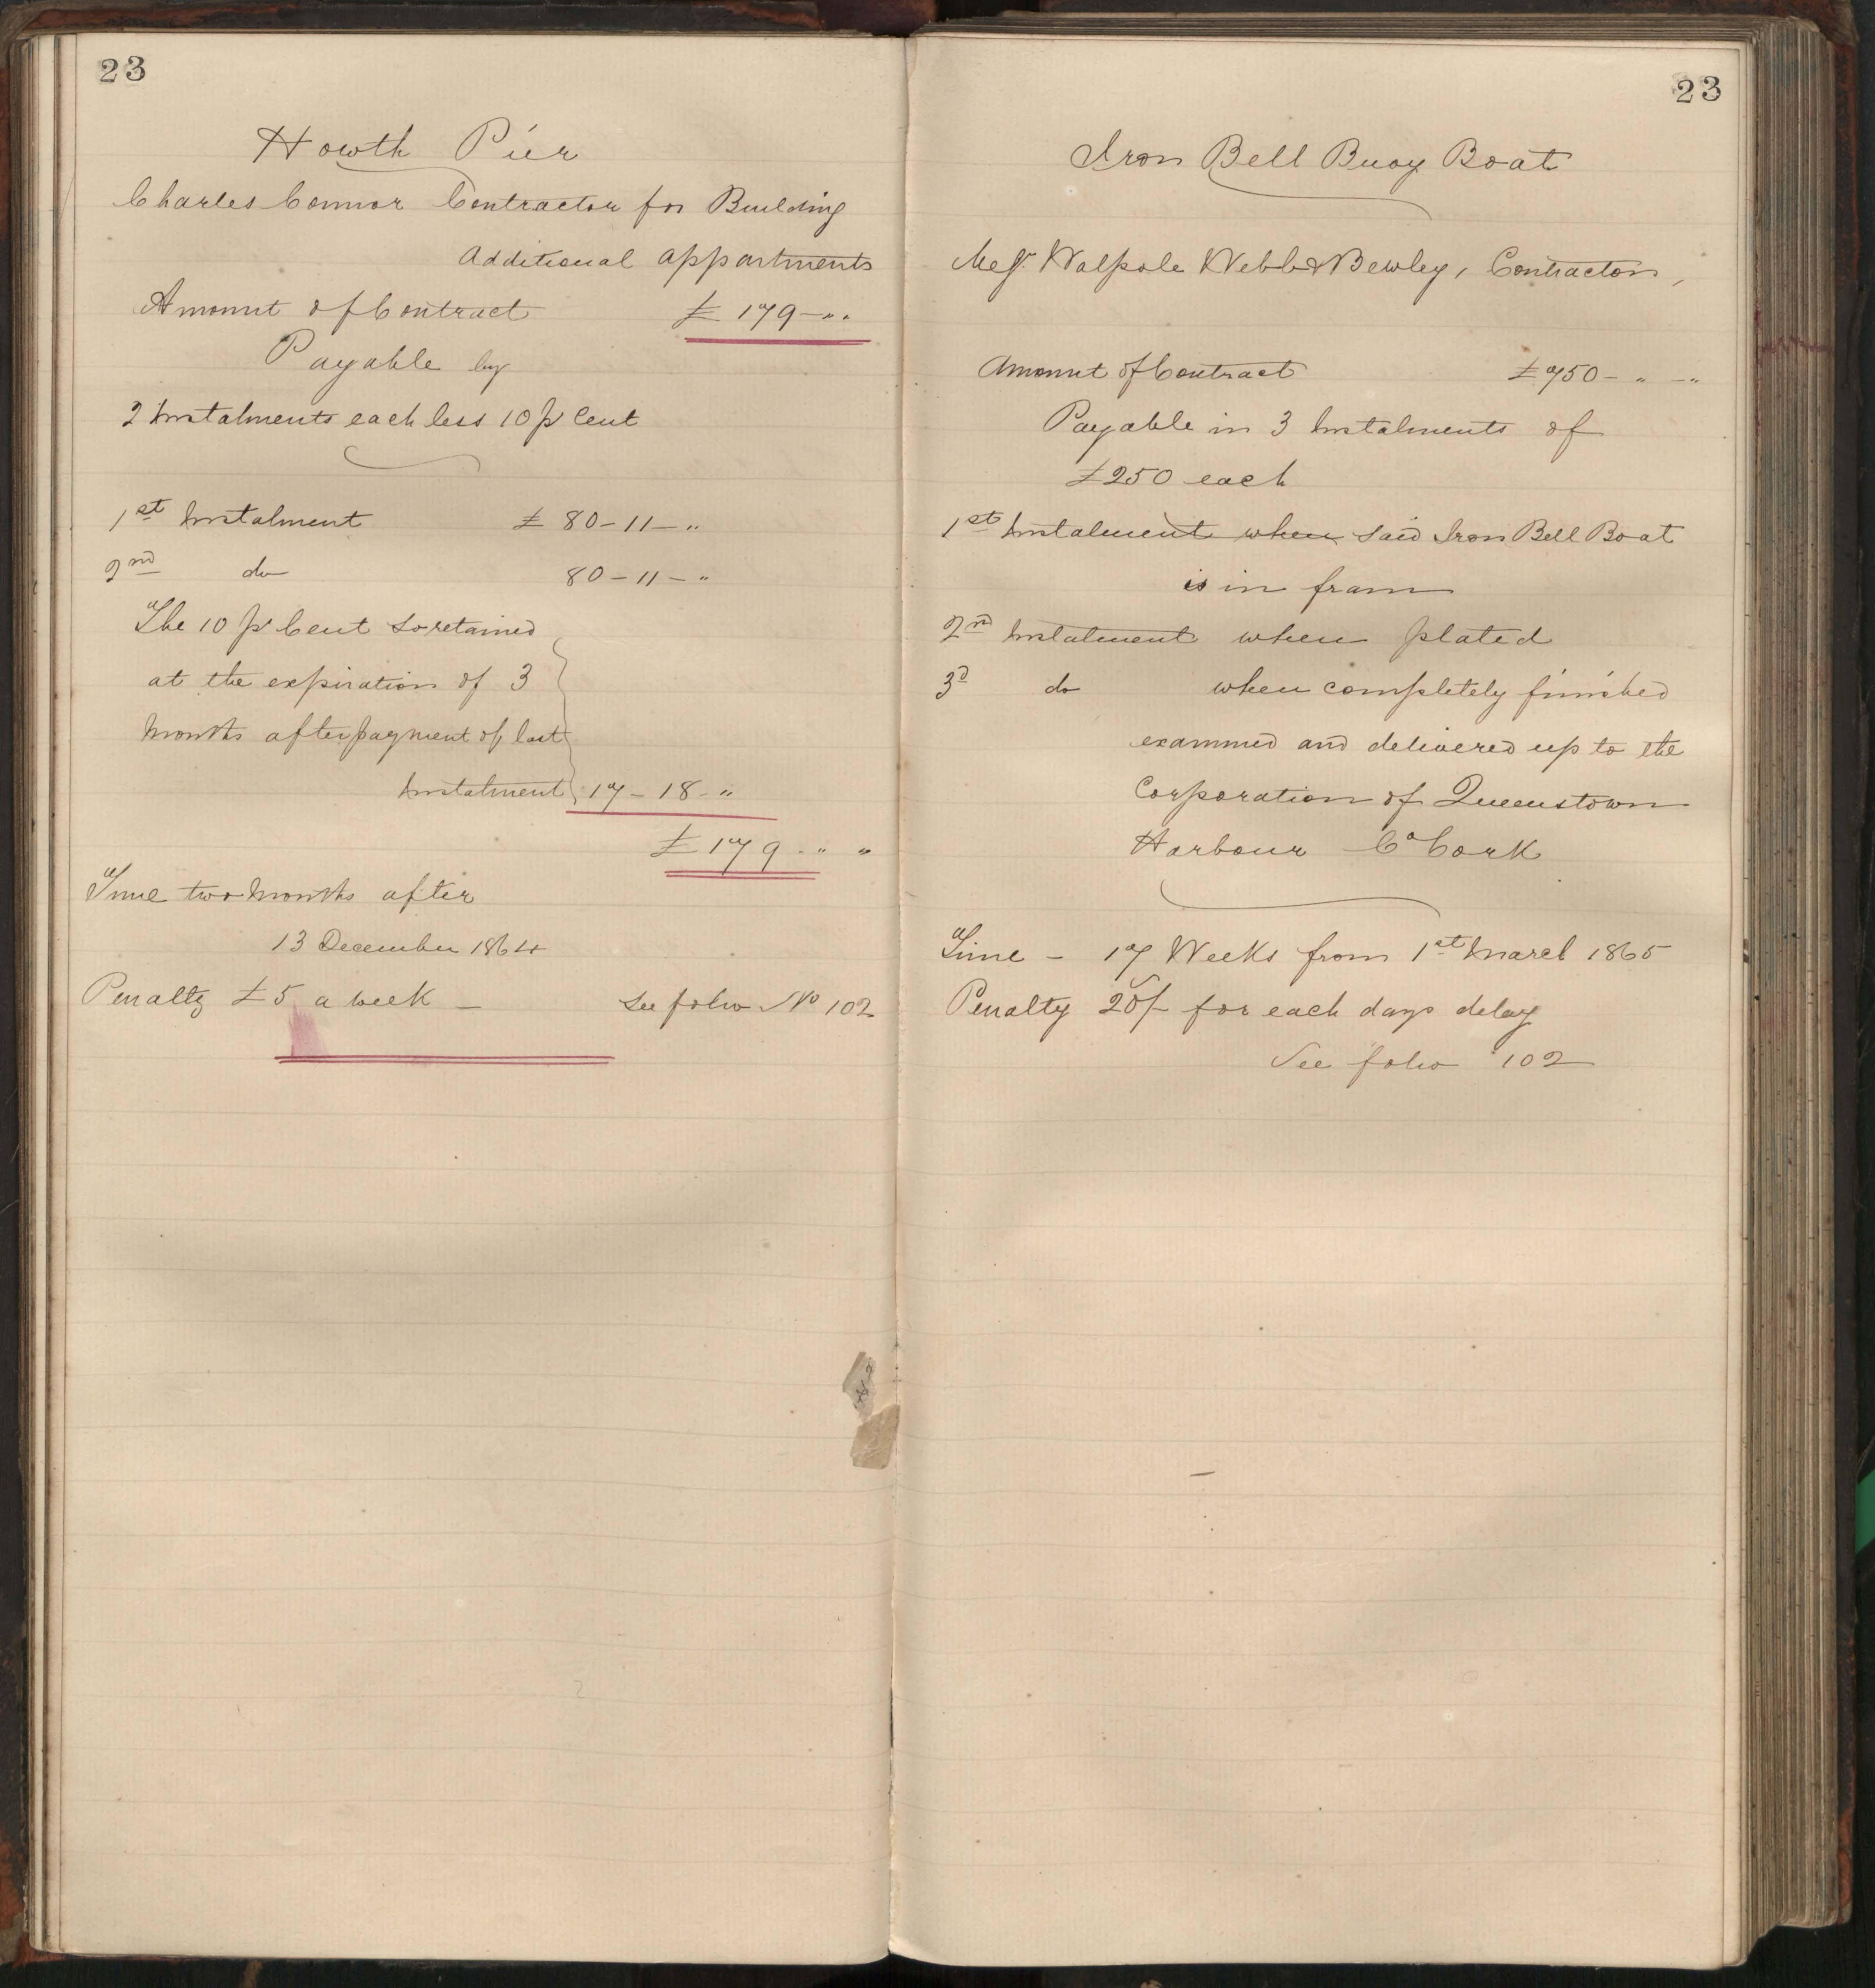 23
Howth Pier
Charles Connor Contractor for Building
Additional appartments
Amount of Contract £ 179 - " "
Payable by
2 Instalments each less 10 pr Cent
1st Instalment £ 80 - 11 - "
2nd do 80 - 11 - "
The 10 pr Cent so retained
at the expiration of 3
months after payment of last
Instalment 17 - 18 - "
£ 179 - " "
Time two months after
13 December 1864
Penalty £5 a week - See folio No 102
23
Iron Bell Buoy Boat
Messrs. Walpole Webb & Bewley, Contractors,
Amount of Contract £750 - " - "
Payable in 3 Instalments of
£250 each
1st Instalment when said Iron Bell Boat
is in fram
2nd Instalment when plated
3d do when completely finished
examined and delivered up to the
Corporation of Queenstown
Harbour Co Cork
Time - 17 Weeks from 1st March 1865
Penalty 20/- for each days delay
See folio 102